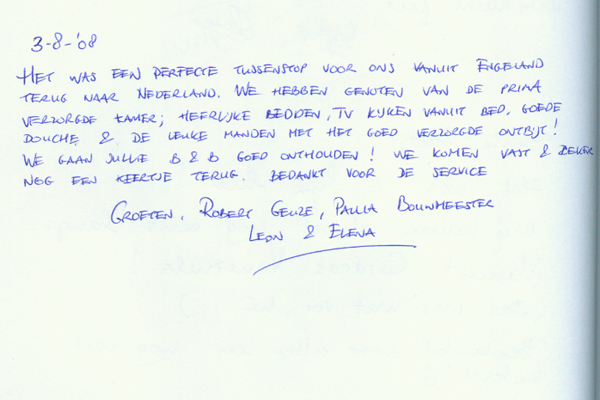 3-8-'08
HET WAS EEN PERFECTE TUSSENSTOP VOOR ONS VANUIT ENGELAND
TERUG NAAR NEDERLAND. WE HEBBEN GENOTEN VAN DE PRIMA
VERZORGDE KAMER; HEERLIJKE BEDDEN, TV KIJKEN VANUIT BED, GOEDE
DOUCHE & DE LEUKE MANDEN MET HET GOED VERZORGDE ONTBIJT!
WE GAAN JULLIE B & B GOED ONTHOUDEN! WE KOMEN VAST & ZEKER
NOG EEN KEERTJE TERUG. BEDANKT VOOR DE SERVICE
GROETEN, ROBERT GEUZE, PAULA BOUWMEESTER
LEON & ELENA